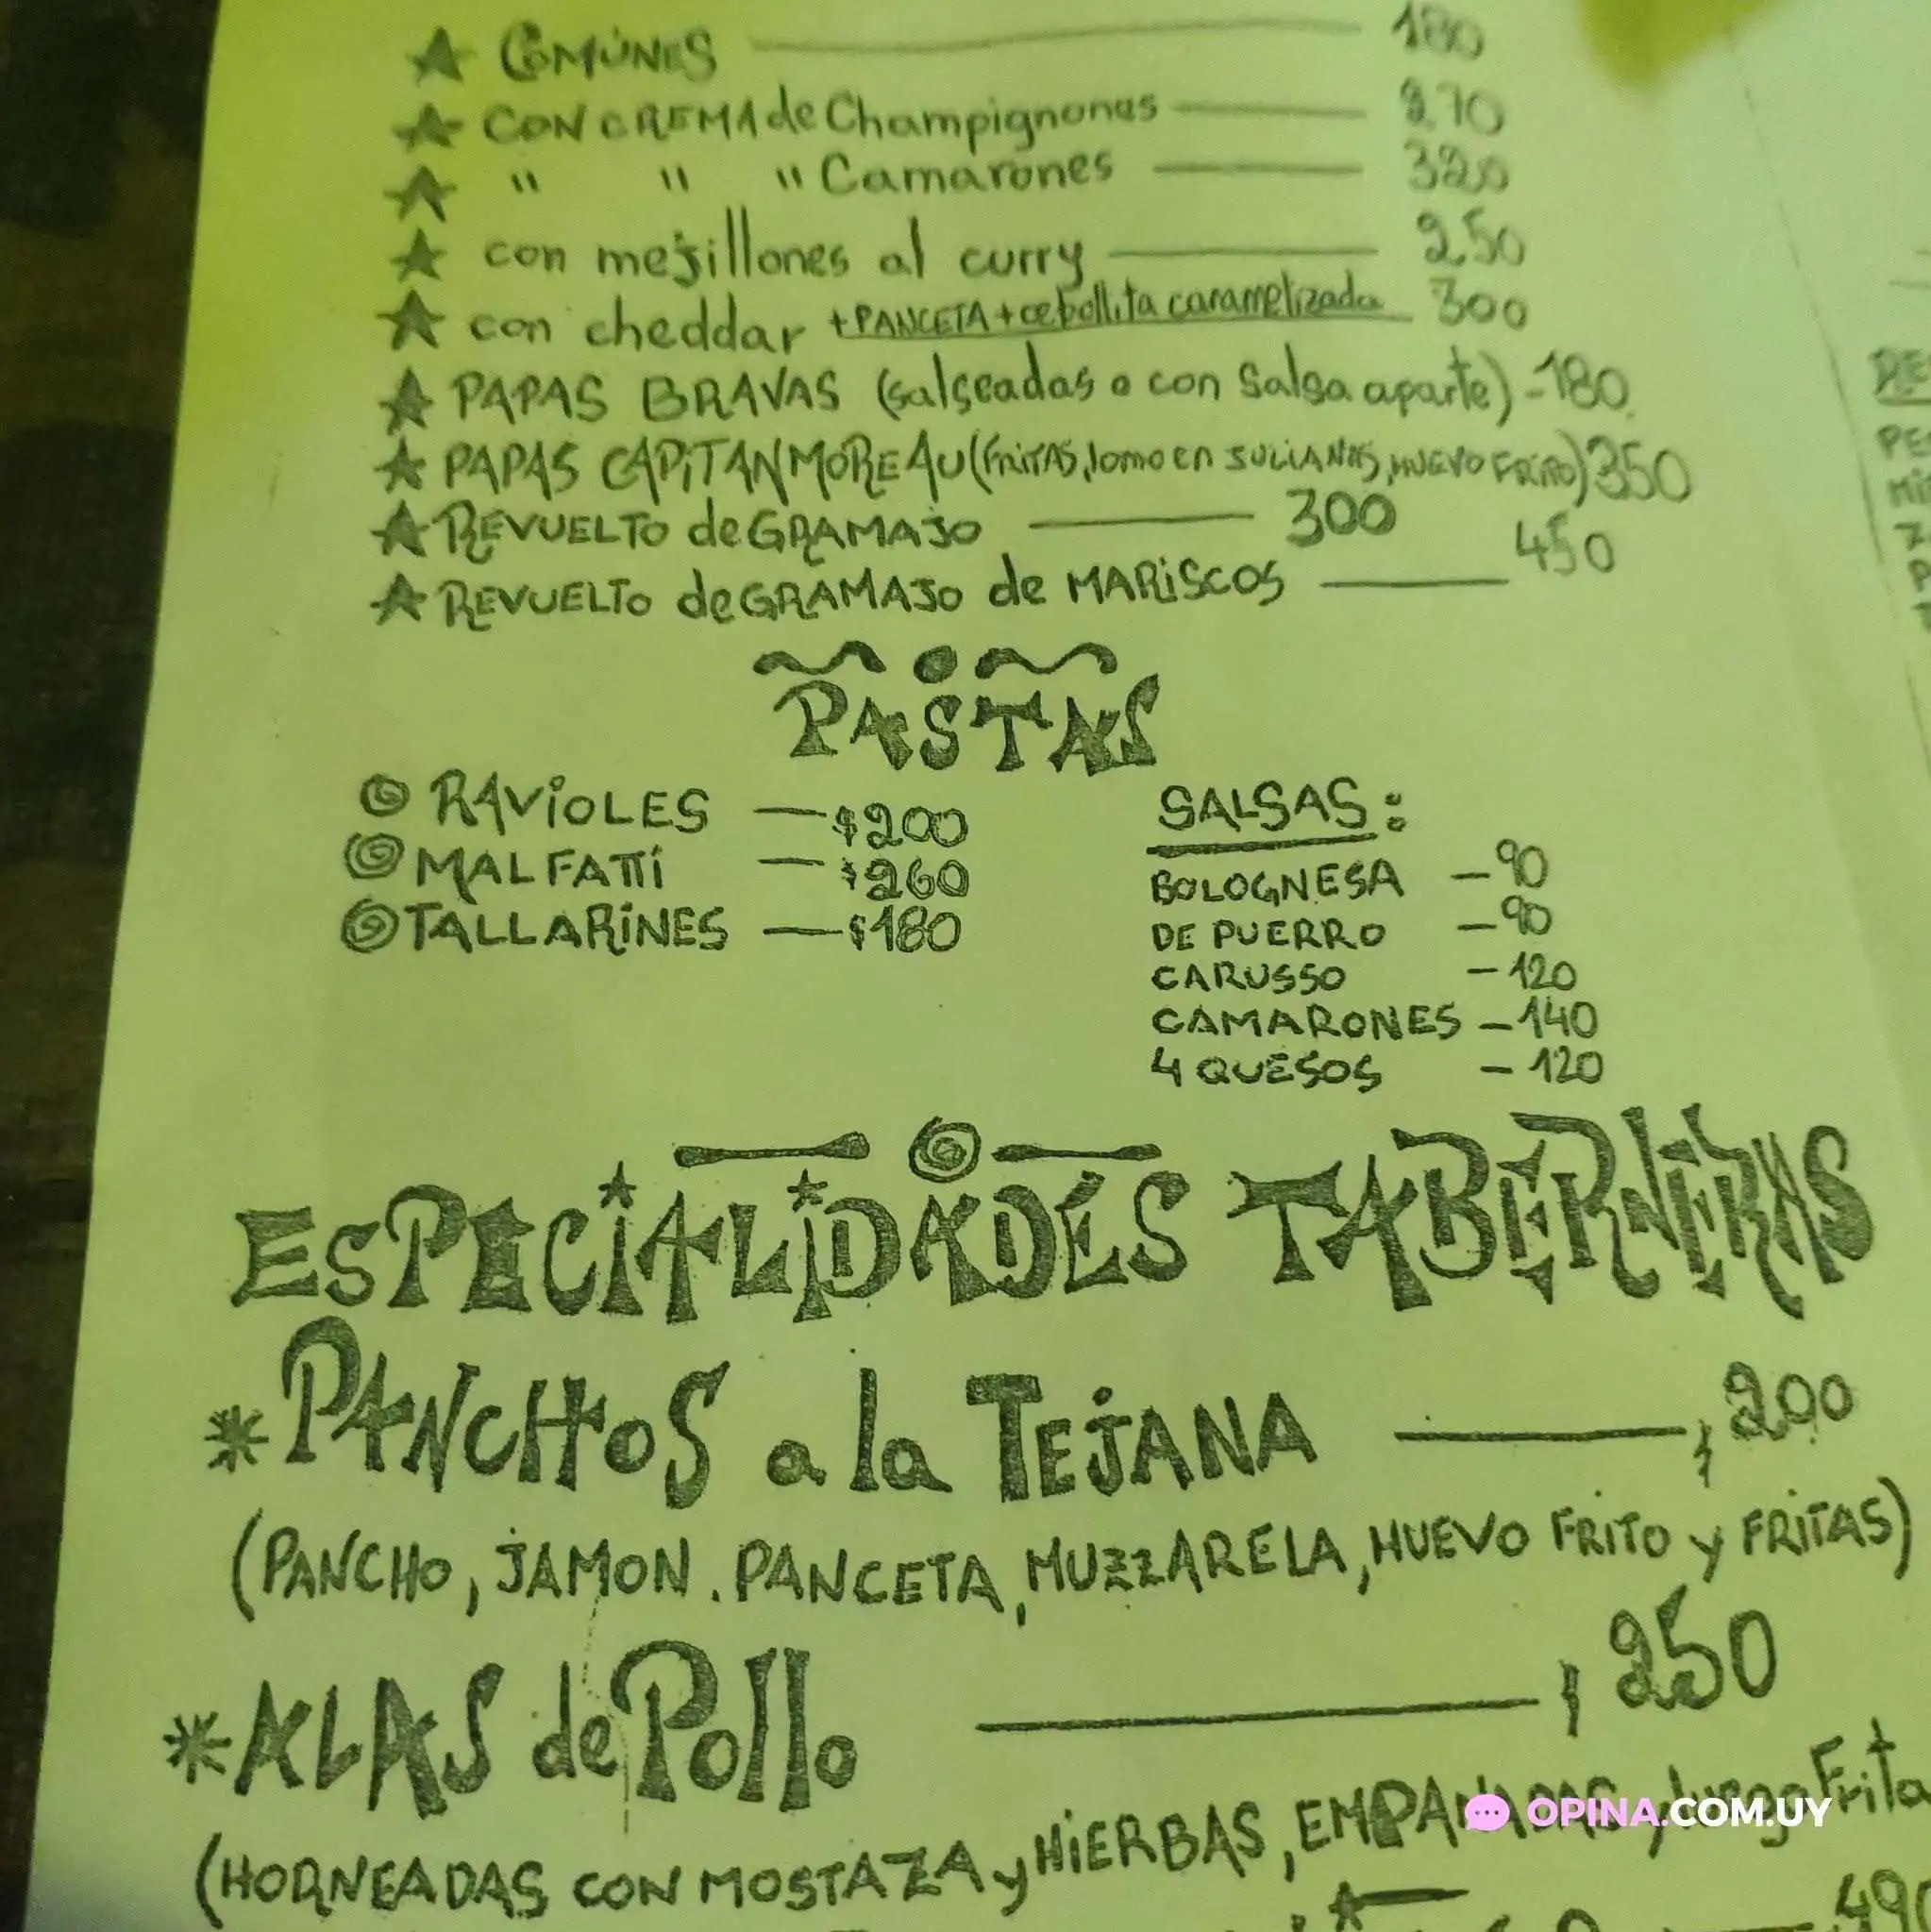 COMÚNES 180
CON CREMA de Champignones 270
" " " Camarones 320
con mejillones al curry 250
con cheddar +PANCETA + cebollita caramelizada 300
PAPAS BRAVAS (salseadas o con salsa aparte) - 180
PAPAS CAPITAN MOREAU (FRITAS, lomo en JULIANAS, HUEVO FRITO) 350
REVUELTO de GRAMAJO 300
REVUELTO de GRAMAJO de MARISCOS 450
PASTAS
RAVIOLES — $200
MALFATTI — $260
TALLARINES — $180
SALSAS:
BOLOGNESA - 90
DE PUERRO - 90
CARUSSO - 120
CAMARONES - 140
4 QUESOS - 120
ESPECIALIDADES TABERNERAS
* PANCHOS a la TEJANA $ 200
(PANCHO, JAMON. PANCETA, MUZZARELA, HUEVO FRITO y FRITAS)
* ALAS de Pollo $ 250
(HORNEADAS CON MOSTAZA y HIERBAS, EMPANADAS, luego Frita
OPINA.COM.UY